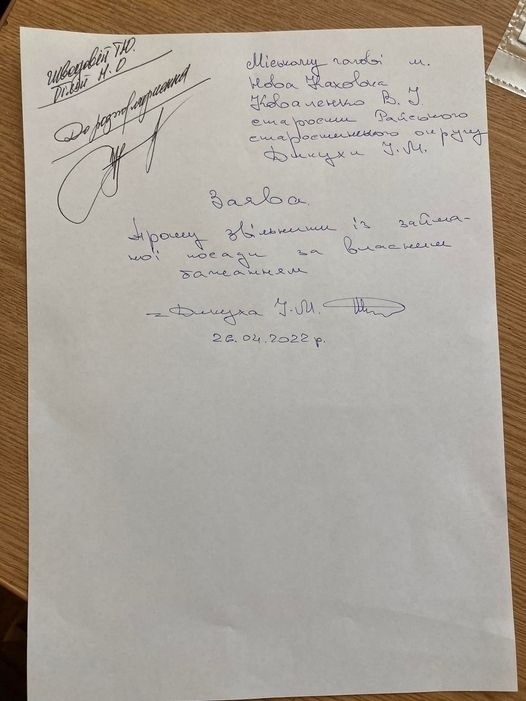 Швецовій Т.Ю.
Н. О
До розпорядження
Міському голові м.
Нова Каховка
Коваленко В. І
старости Райського
старостинського округу
Дикухи І.М.
Заява.
Прошу звільнити із займа-
ної посади за власним
бажанням
Дикуха І.М.
26.04.2022 р.